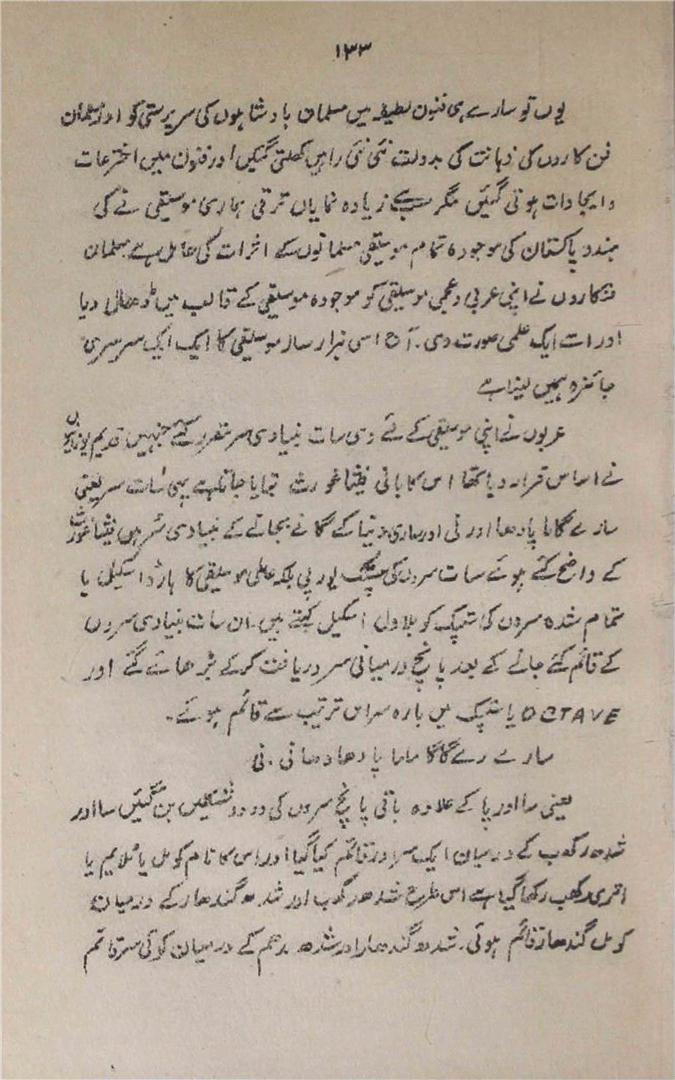 ۱۳۳
یوں تو سارے ہی فنون لطیفہ میں مسلمان بادشاہوں کی سرپرستی کو اور مسلمان
فن کاروں کی ذہانت کی بدولت نئی نئی راہیں کھلتی گئیں اور فنون میں اختراعات
و ایجادات ہوتی گئیں مگر سب سے زیادہ نمایاں ترقی ہماری موسیقی نے کی
ہند و پاکستان کی موجودہ تمام موسیقی مسلمانوں کے اثرات کی حامل ہے مسلمان
فنکاروں نے اپنی عربی و عجمی موسیقی کو موجودہ موسیقی کے قالب میں ڈھال دیا
اور اسے ایک علمی صورت دی۔ آج اسی ہزار ساز موسیقی کا ایک ایک سرسری
جائزہ ہمیں لینا ہے
عربوں نے اپنی موسیقی کے لئے وہی سات بنیادی سر مقرر کئے جنہیں قدیم یونانیوں
نے اساس قرار دیا تھا اس کا بانی فیثا غورث بتایا جاتا ہے یہی سات سر یعنی
سا رے گا ما پا دھا اور نی اور ساری دنیا کے گانے بجانے کے بنیادی سر ہیں فیثا غورث
کے واضح کئے ہوئے سات سروں کی سپتک یورپی بلکہ علمی موسیقی کا ہارڈ اسکیل یا
تمام شدھ سروں کی سپتک کو بلاول اسکیل کہتے ہیں۔ ان سات بنیادی سروں
کے قائم کئے جانے کے بعد پانچ درمیانی سر دریافت کرکے بڑھائے گئے اور
OCTAVE یا سپتک میں بارہ سر اس ترتیب سے قائم ہوئے۔
سا رے رے گا گا ما ما پا دھا دھا نی۔ نی
یعنی سا اور پا کے علاوہ باقی پانچ سروں کی دو دو شکلیں بن گئیں سا اور
شدھ رکھب کے درمیان ایک سر اور قائم کیا گیا اور اس کا نام کومل یا ملایم یا
اتری رکھب رکھا گیا ہے اس طرح شدھ رکھب اور شدھ گندھار کے درمیان
کومل گندھار قائم ہوئی۔ شدھ گندھار اور شدھ مدھم کے درمیان کوئی سر قائم